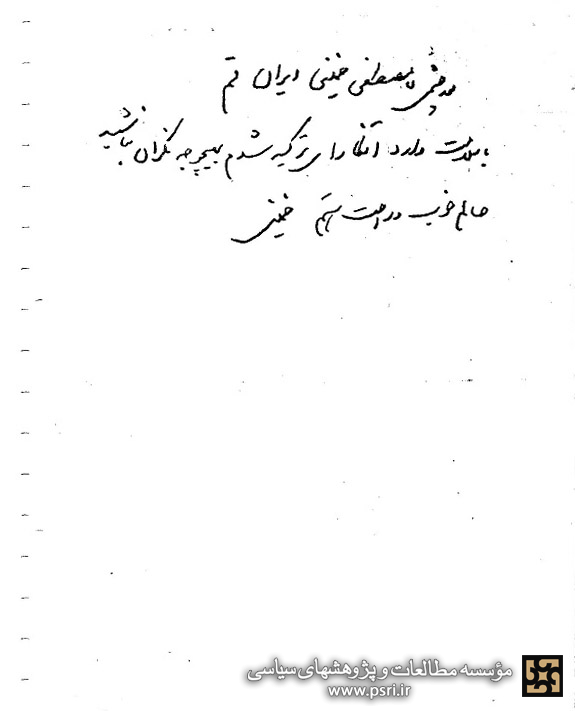 مصطفی خمینی ایران قم
با سلامت وارد آنکارای ترکیه شدم بهیچوجه نگران نباشید
حالم خوب و راحت هستم خمینی
مؤسسه مطالعات و پژوهشهای سیاسی
www.psri.ir